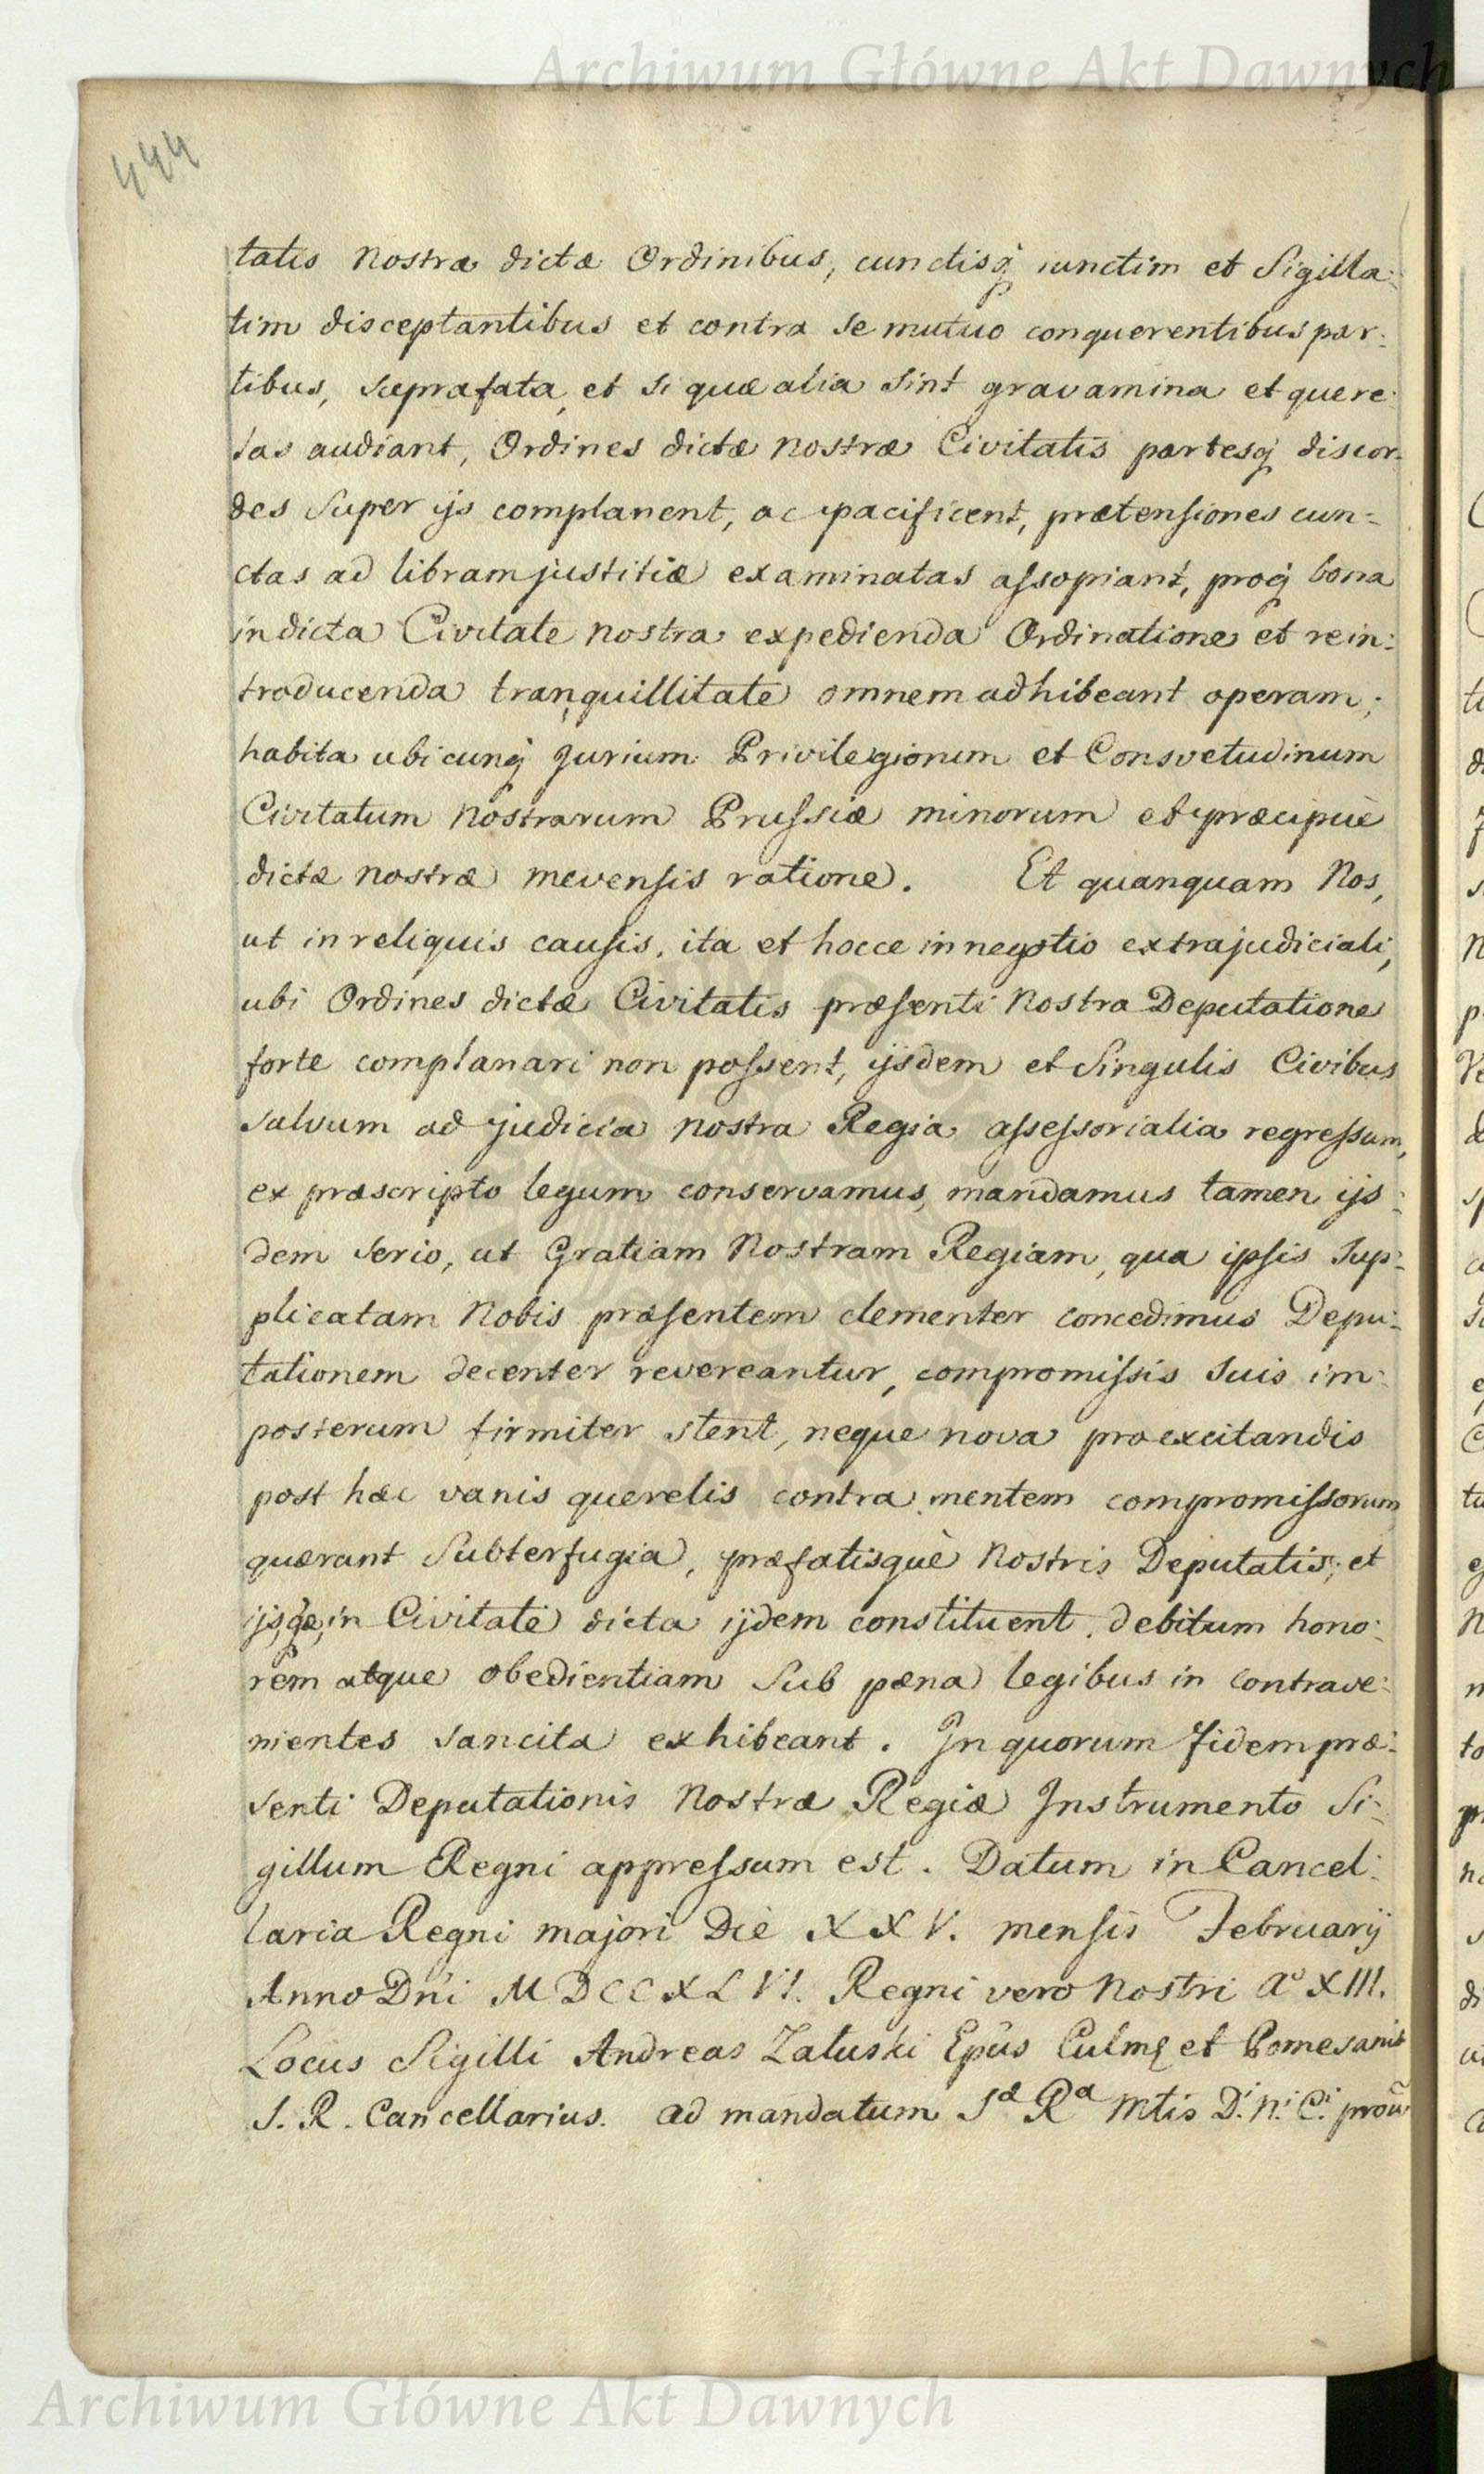 Archiwum Główne Akt Dawnych
444
tatis Nostræ dictæ Ordinibus, cunctisq́ iunctim et Sigilla:
tim disceptantibus et contra se mutuo conquerentibus par:
tibus, suprafata, et si quæ alia sint gravamina et quere:
las audiant, Ordines dictæ Nostræ Civitatis partesq́ discor:
des super ijs complanent, ac pacificent, prætensiones cun=
ctas ad libram justitiæ examinatas assopiant, proq́ bona
in dicta Civitate Nostra expedienda Ordinatione et rein:
troducenda tranquillitate omnem adhibeant operam;
habita ubicunq́ Jurium Privilegiorum et Consvetudinum
Civitatum Nostrarum Prussiæ minorum et præcipuè
dictæ Nostræ Mevensis ratione. Et quanquam Nos,
ut in reliquis causis, ita et hocce in negotio extrajudiciali,
ubi Ordines dictæ Civitatis præsenti Nostra Deputatione
forte complanari non possent, ijsdem et Singulis Civibus
salvum ad judicia Nostra Regia assessorialia regressum,
ex præscripto legum conservamus, mandamus tamen ijs:
dem serio, ut Gratiam Nostram Regiam, qua ipsis sup:
plicatam Nobis præsentem clementer concedimus Depu:
tationem decenter revereantur, compromissis suis im:
posterum firmiter stent, neque nova pro excitandis
post hæc vanis querelis contra mentem compromissorum
quærant Subterfugia, præfatisquè Nostris Deputatis, et
ijs, qæ, in Civitate dicta ijdem constituent, debitum hono:
rem atque obedientiam Sub pæna legibus in contrave:
nientes sancita exhibeant. In quorum fidem præ:
senti Deputationis Nostræ Regiæ Instrumento Si:
gillum Regni appressum est. Datum in Cancel:
laria Regni majori Die XXV. mensis Februarij
Anno Dni MDCCXLVI. Regni vero Nostri Aº XIII.
Locus Sigilli Andreas Załuski Epus Culmę et Pomesaniæ
S. R. Cancellarius. ad mandatum Sæ Ræ Mtis D. N. C. proũ
Archiwum Główne Akt Dawnych